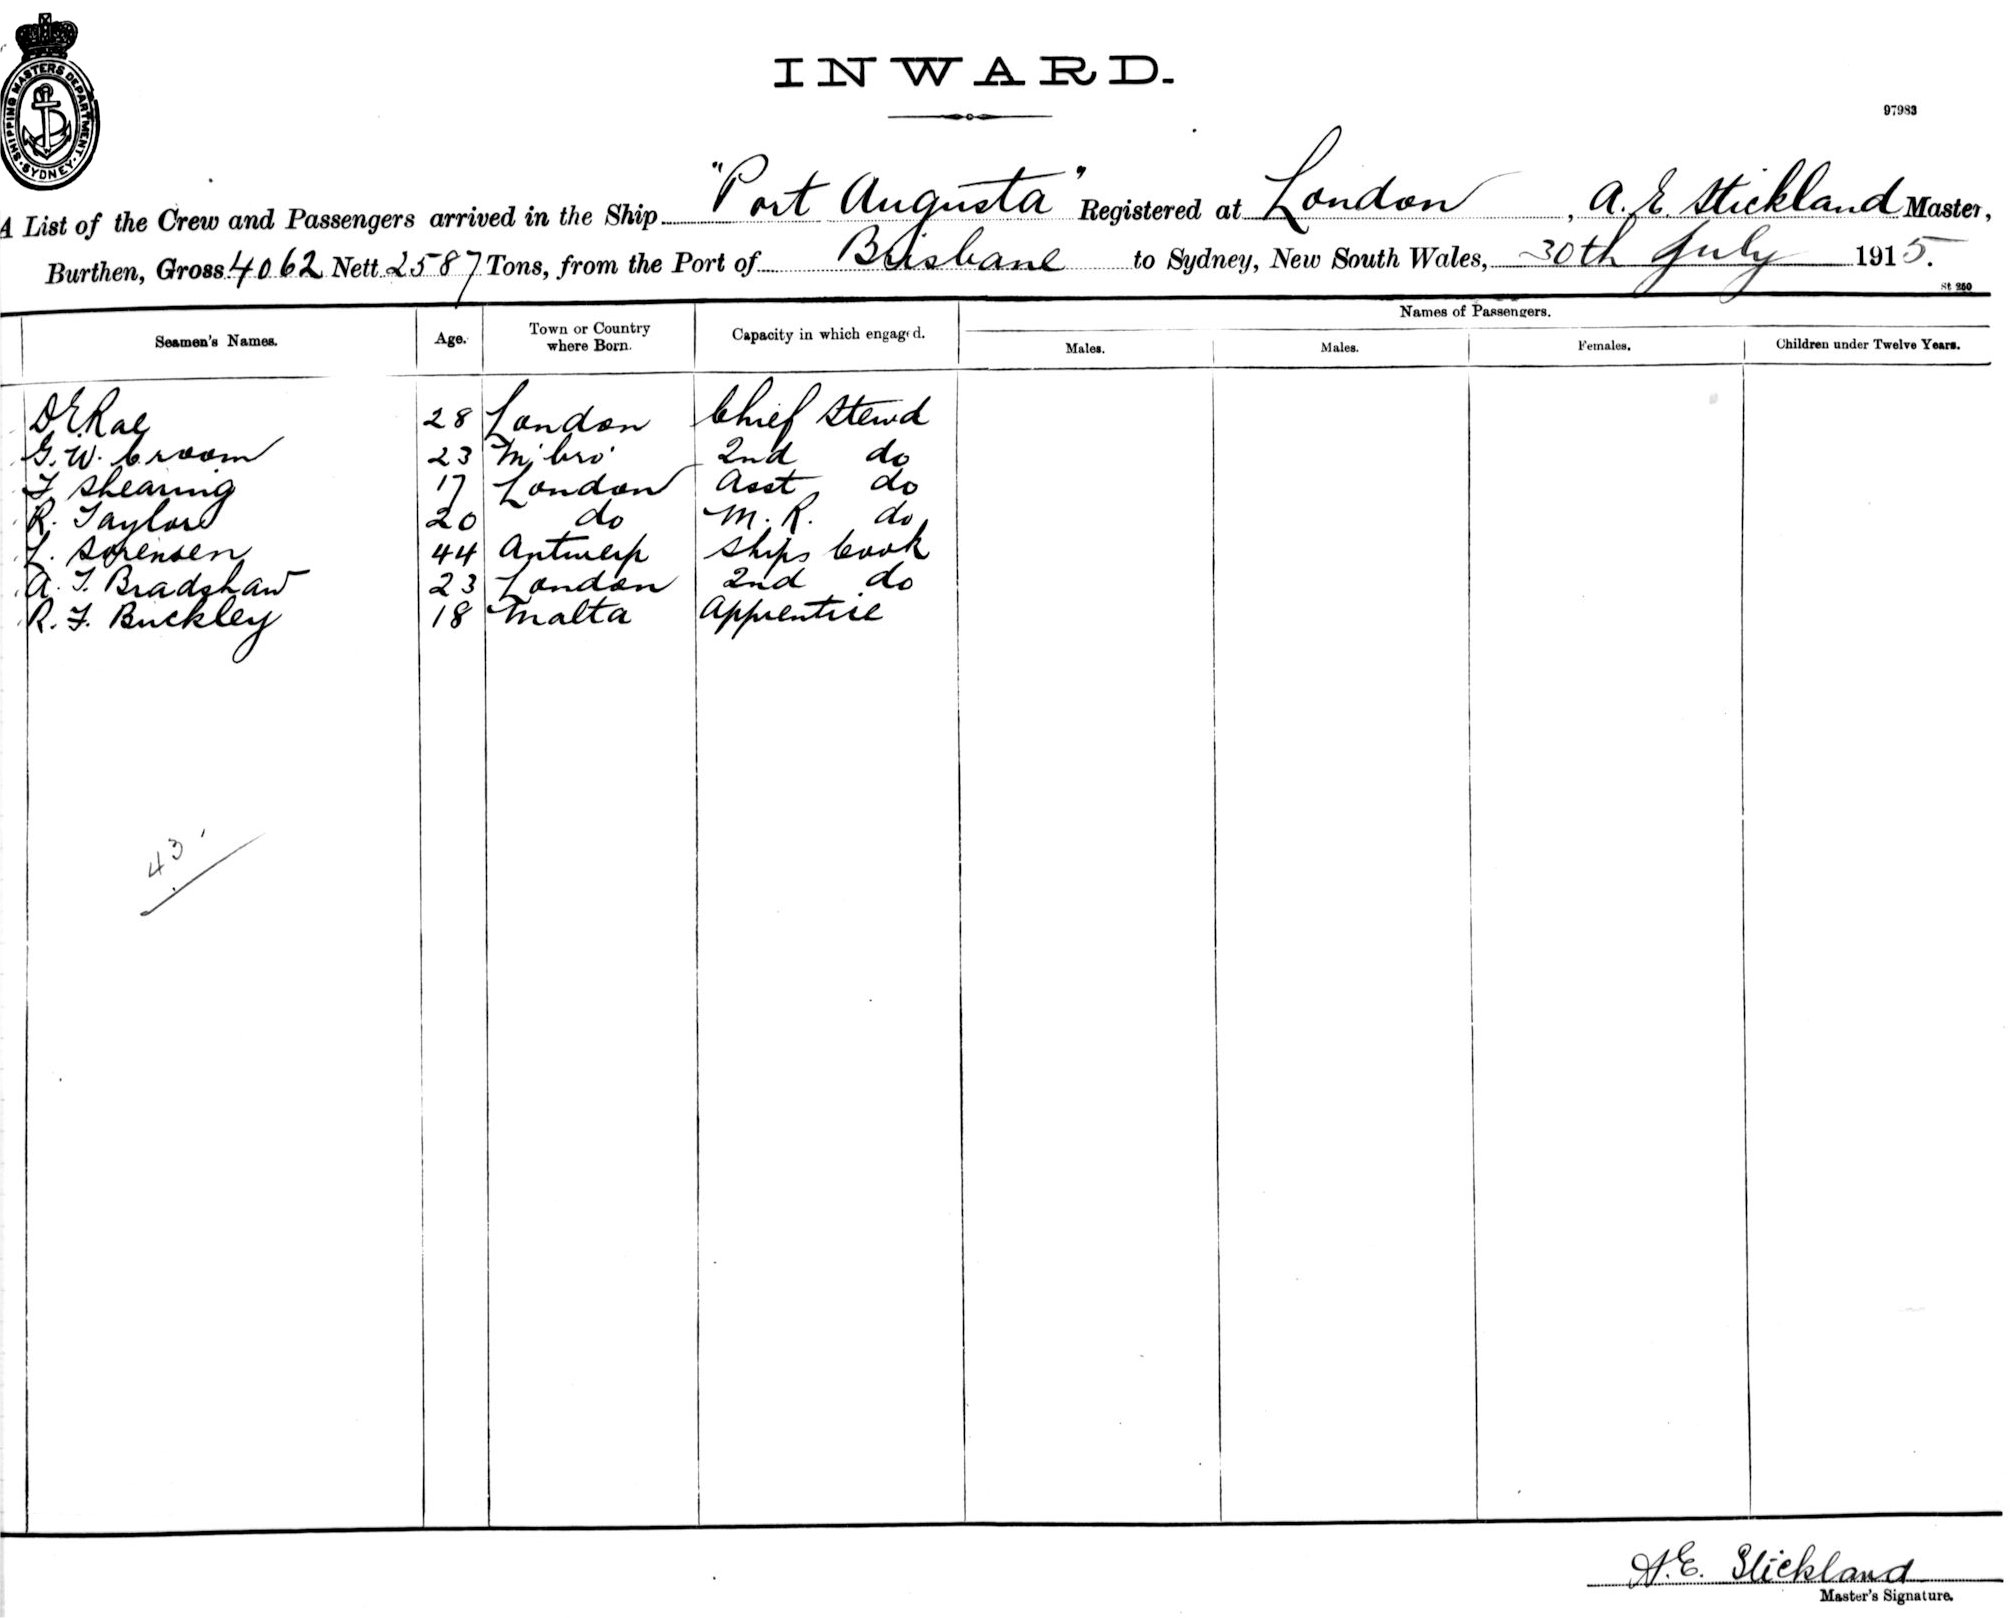 SHIPPING MASTERS DEPARTMENT · SYDNEY ·
INWARD.
97983
A List of the Crew and Passengers arrived in the Ship "Port Augusta" Registered at London, A. E. Stickland Master,
Burthen, Gross 4062 Nett 2587 Tons, from the Port of Brisbane to Sydney, New South Wales, 30th July 1915.
St 250
Names of Passengers.
Seamen's Names. Age. Town or Country where Born. Capacity in which engaged. Males. Males. Females. Children under Twelve Years.
D E Rae 28 London Chief Stewd
G. W. Croom 23 M'bro' 2nd do
F Shearing 17 London Asst do
R. Taylor 20 do M. R. do
L. Sorensen 44 Antwerp Ships Cook
A. T. Bradshaw 23 London 2nd do
R. F. Buckley 18 Malta Apprentice
43
A. E. Stickland
Master's Signature.